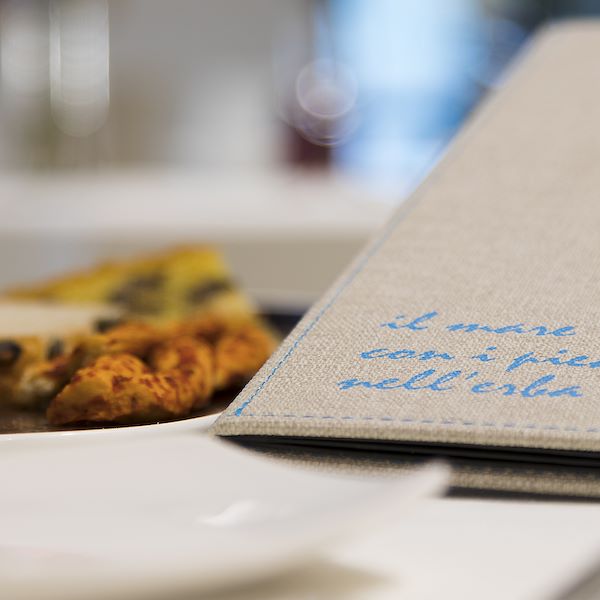 il mare
con i
nell'erba